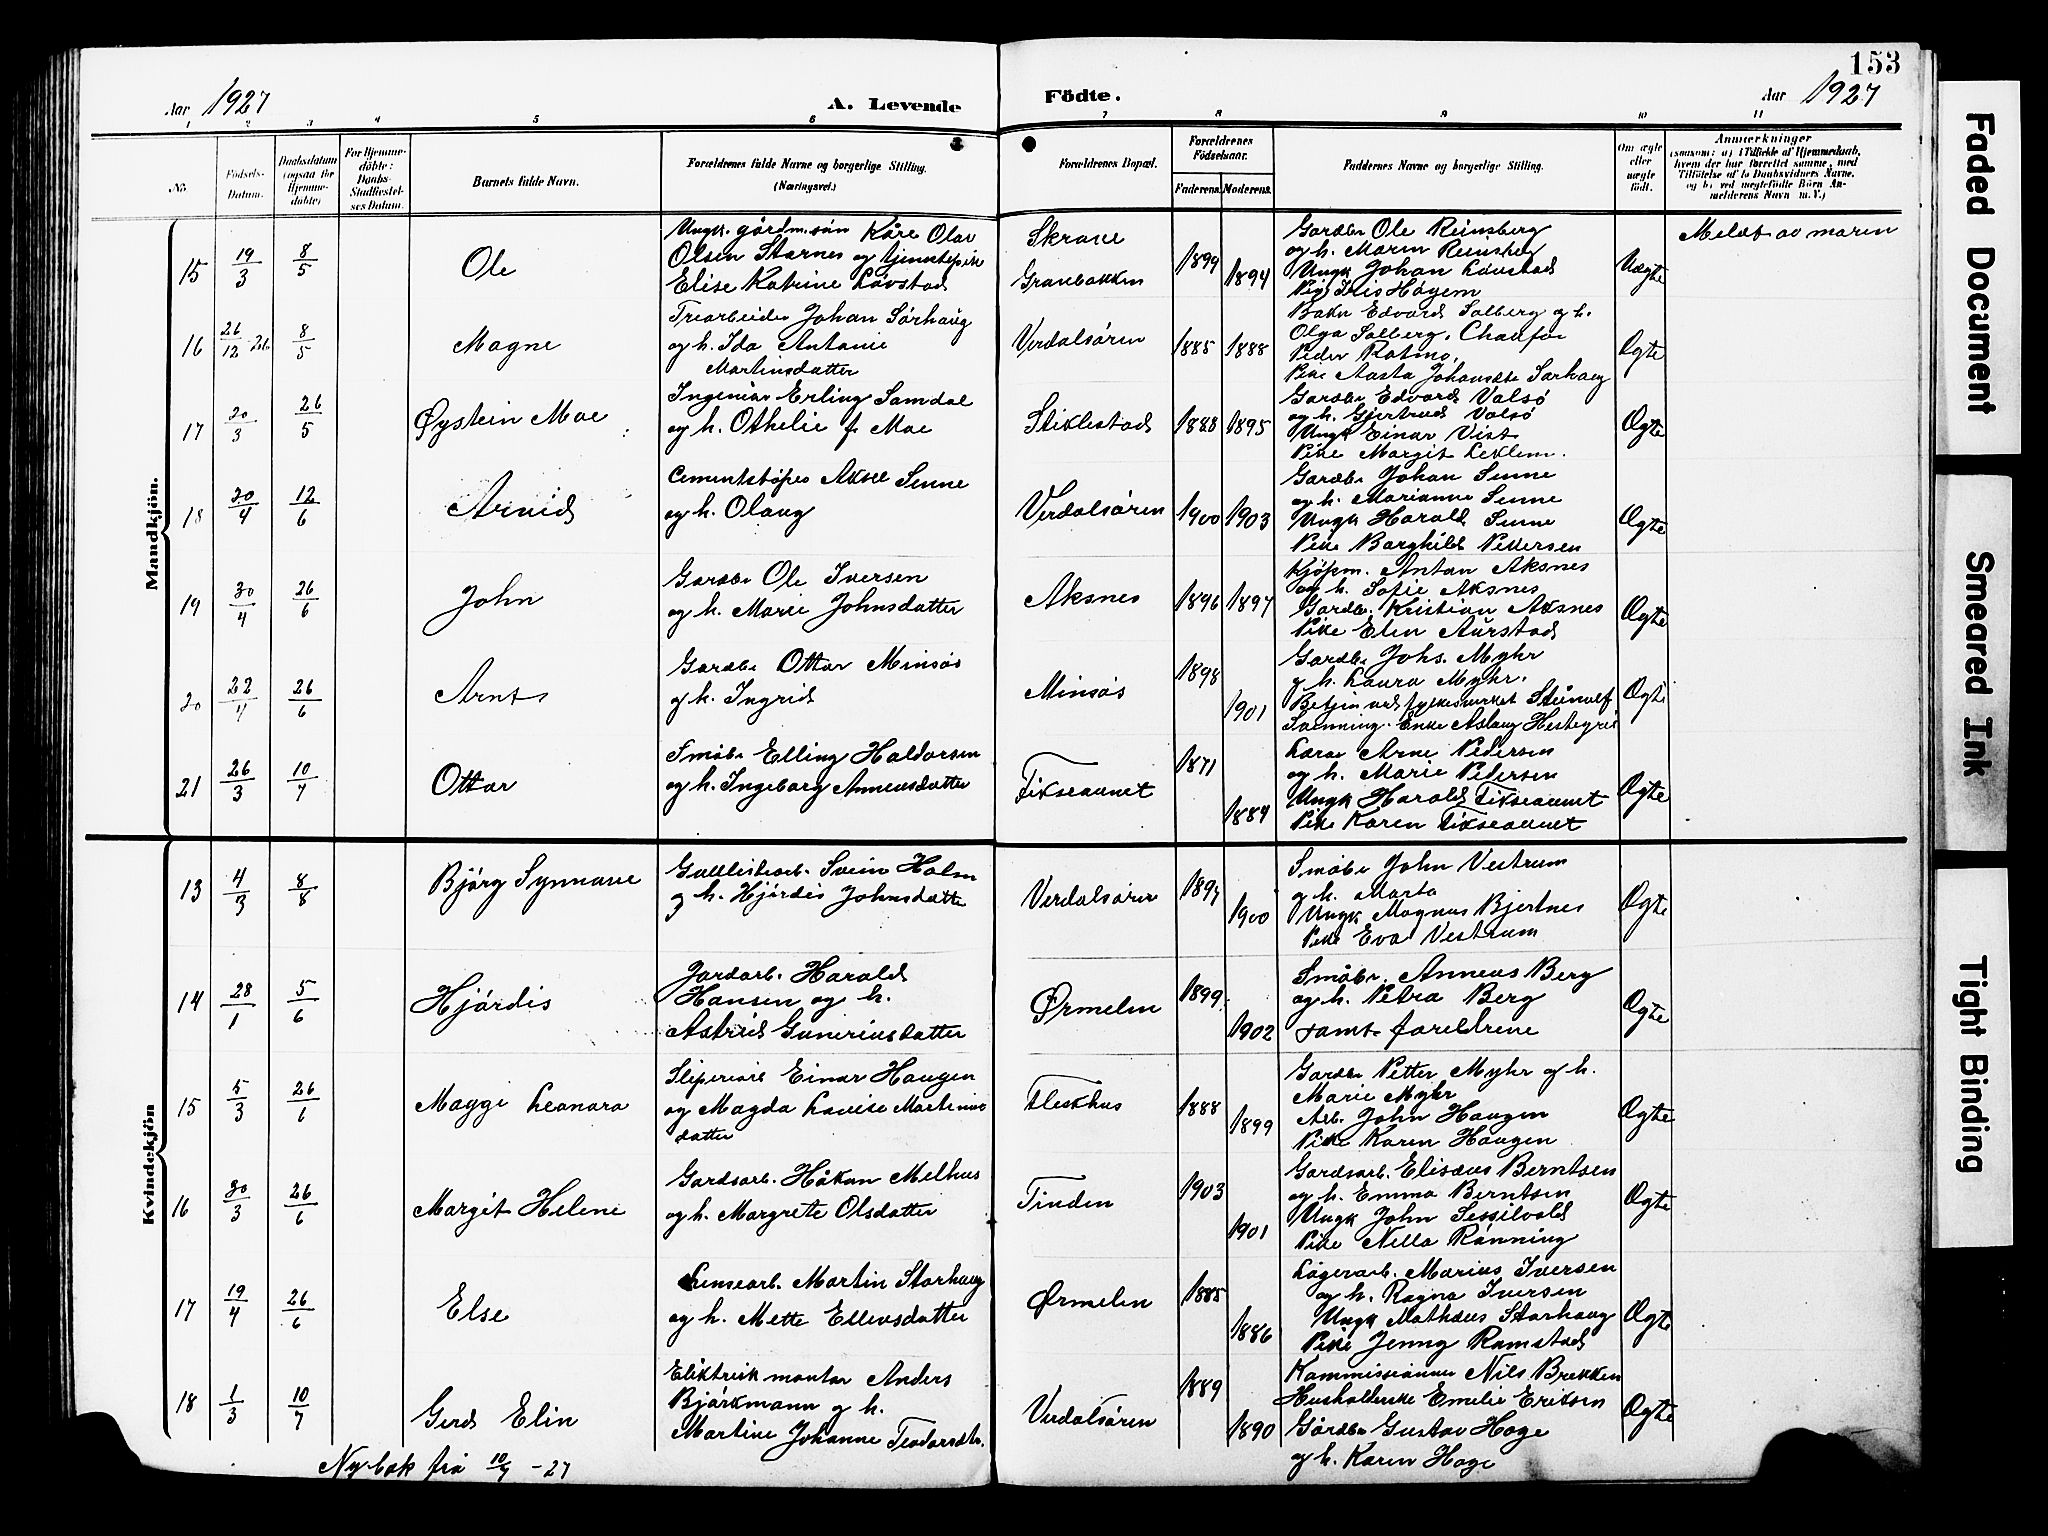 153
Aar 1927
A. Levende
Födte.
Aar 1927
1 2 3 4 5 6 7 8 9 10 11
No.
Födsels-
Datum.
Daabsdatum
(ogsaa for
Hjemme-
döbte)
For Hjemme-
döbte:
Daabs-
Stadfæstel-
ses Datum.
Barnets fulde Navn.
Forældrenes fulde Navne og borgerlige Stilling.
(Næringsvei.)
Forældrenes Bopæl.
Forældrenes
Födselsaar.
Faderens.
Moderens.
Faddernes Navne og borgerlige Stilling.
Om ægte
eller
uægte
födt.
Anmærkninger
(saasom: a) i Tilfælde af Hjemmedaab,
hvem der har forrettet samme, med
Tilföielse af to Daabsvidners Navne,
og b) ved uegtefödte Börn An-
melderens Navn m. V.)
Mandkjön.
15 19/3 8/5 Ole
Ungk. gårdm. sön Kåre Olav
Olsen Starnes og tjenestepike
Elise Katrine Lövstad
Skrove
Granbakken
1899 1894
Gardbr Ole Reinsberg
og h. Maren Reinsberg
Ungk Johan Lövstad
Pige Iris Högem
Uægte
Meldt av moren
16 26/12 26 8/5 Magne
Trearbeider Johan Sörhaug
og h. Ida Antonie
Martinsdatter
Verdalsören
1885 1888
Baker Edvard Solberg og h.
Olga Solberg. Chaufför
Peder Rotmo.
Pike Aasta Johansdtr Sörhaug
Ægte
17 20/3 26/5 Øystein Moe
Ingeniör Erling Samdal
og h. Othelie f. Moe
Stiklestad
1888 1895
Gardbr Edvard Valsö
og h. Gjertrud Valsö
Ungk Einar Vist
Pike Margit Leklem.
Ægte
18 30/4 12/6 Arvid
Cementstöper Aksel Senne
og h. Olaug
Verdalsören
1900 1903
Gardbr Johan Senne
og h. Marianne Senne
Ungk Harald Senne
Pike Borghild Pedersen
Ægte
19 30/4 26/6 John
Gardbr Ole Iversen
og h. Marie Johnsdatter
Aksnes
1896 1897
Kjöpm. Anton Aksnes
og h. Sofie Aksnes
Gardbr. Kristian Aksnes
Pike Elen Aurstad
Ægte
20 22/4 26/6 Arnt
Gardbr Ottar Minsås
og h. Ingrid
Minsås
1898
1901
Gardbr Johs. Myhr
og h. Laura Myhr.
Betjen ved fylkesverket Steinulf
Svenning. Enke Aslaug Hestegrei
Ægte
21 26/3 10/7 Ottar
Småbr Elling Haldorsen
og h. Ingeborg Anneusdatter
Fikseaunet
1871
1889
Lærer Arne Pedersen
og h. Marie Pedersen
Ungk Harald Fikseaunet
Pike Karen Fikseaunet
Ægte
Kvindekjön
13 4/3 8/8 Bjørg Synnøve
Svein Holm
og h. Hjördis Johnsdatter
Verdalsören
1897
1900
Småbr John Vestrum
og h. Marta
Ungk Magnus Bjertnes
Pike Eva Vestrum
Ægte
14 28/1 5/6 Hjördis
Jordarb. Harald
Hansen og h.
Astrid Guneriusdatter
Ørmelen
1899
1902
Småbr. Anneus Berg
og h. Petra Berg
samt foreldrene
Ægte
15 5/3 26/6 Maggi Leonora
Sliperiarb Einar Haugen
og Magda Lovise Martinus
datter
Fleskhus
1888
1899
Gardbr Petter Myhr og h.
Marie Myhr
Arb. John Haugen
Pike Karen Haugen
Ægte
16 30/3 26/6 Margit Helene
Gardsarb. Håkon Melhus
og h. Margrete Olsdatter
Tinden
1903
1901
Gardsarb. Elisæus Berntsen
og h. Emma Berntsen
Ungk John Sessilvold
Pike Nella Rönning
Ægte
17 19/4 26/6 Else
Lensearb. Martin Storhaug
og h. Mette Ellevsdatter
Ørmelen
1885
1886
Lagerarb. Marius Iversen
og h. Ragna Iversen
Ungk Mathæus Storhaug
Pike Jenny Ramstad
Ægte
18 1/3 10/7 Gerd Elin
Elektrisk montör Anders
Bjørkmann og h.
Martine Johanne Teodorsdtr.
Verdalsören
1889
1890
Kommissionær Nils Brekken
Husholderske Emelie Eriksen
Gårdbr Gustav Hage
og h. Karen Hage
Ægte
Ny bok fra 10/7 - 27
Faded Document
Smeared Ink
Tight Binding